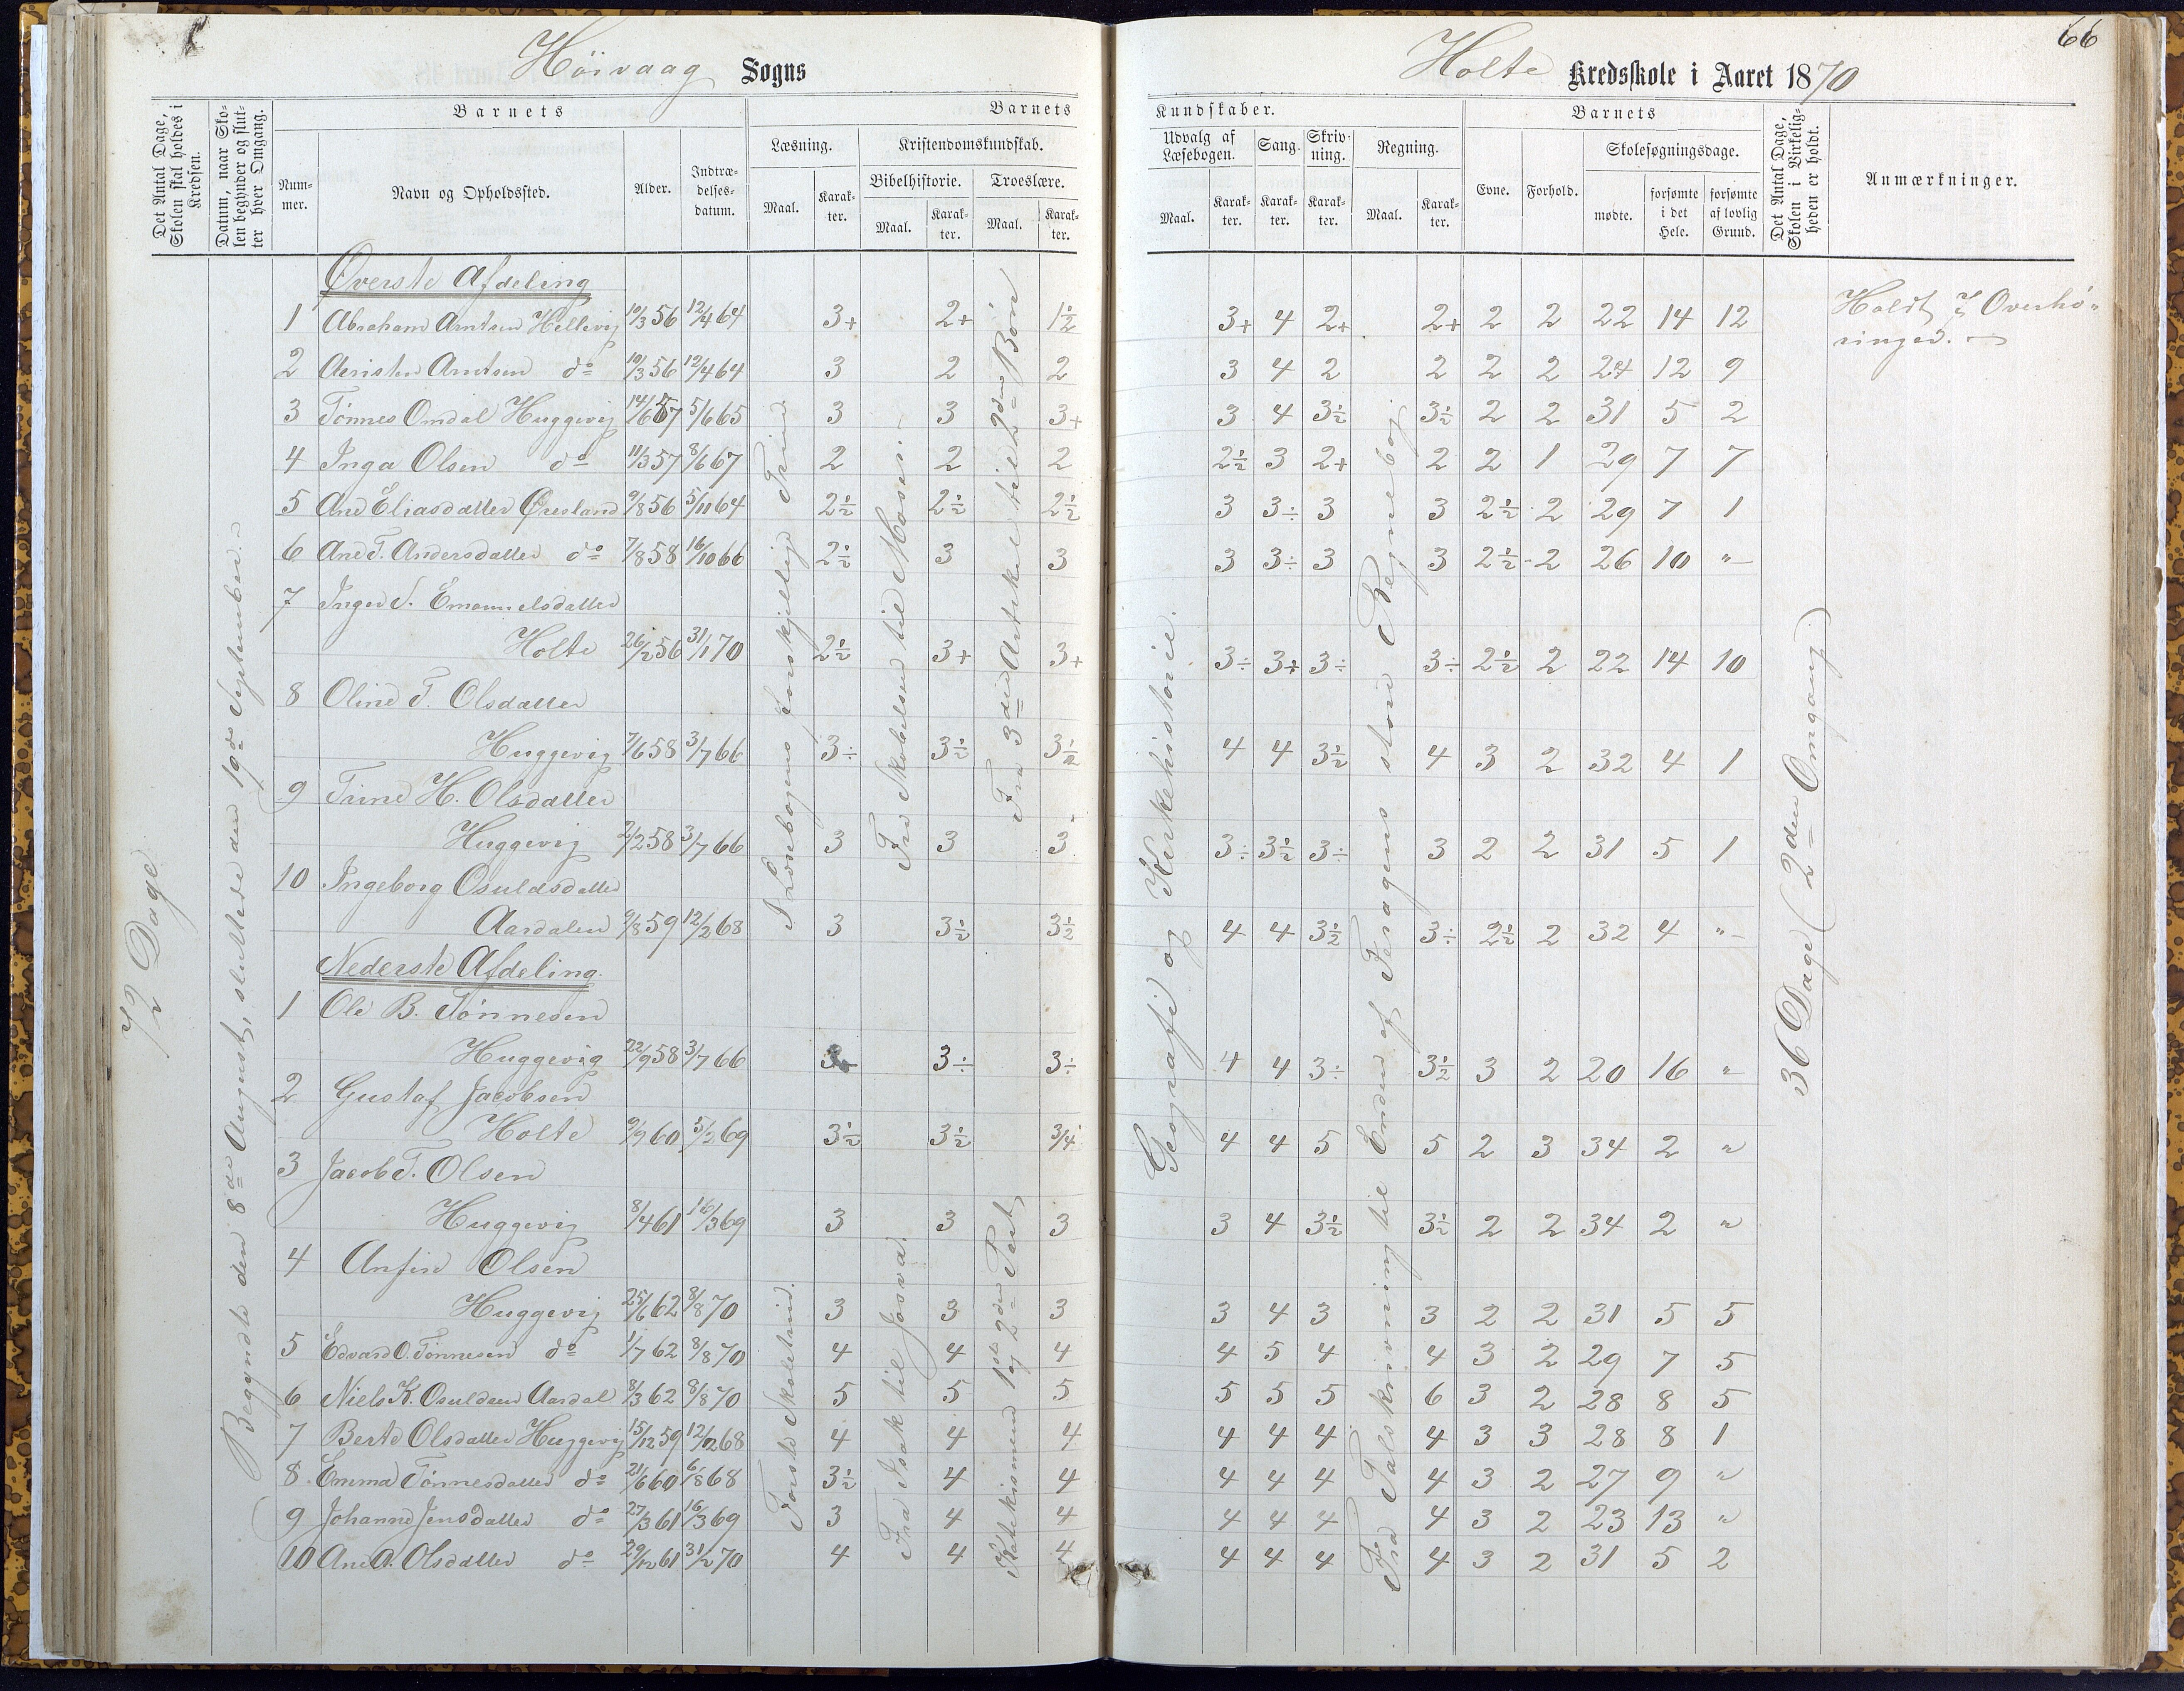 66
Höivaag Sogns
Holte Kredsskole i Aaret 1870
Det Antal Dage, Skolen skal holdes i Kredsen.
Datum, naar Skolen begynder og slutter hver Omgang.
Barnets
Nummer.
Navn og Opholdssted.
Alder.
Indtrædelsesdatum.
Barnets
Læsning.
Kristendomskundskab.
Bibelhistorie.
Troeslære.
Maal.
Karakter.
Maal.
Karakter.
Maal.
Karakter.
Kundskaber.
Udvalg af Læsebogen.
Sang.
Skrivning.
Regning.
Maal.
Karakter.
Karakter.
Karakter.
Maal.
Karakter.
Barnets
Evne.
Forhold.
Skolesøgningsdage.
mødte.
forsømte i det Hele.
forsømte af lovlig Grund.
Det Antal Dage, Skolen i Virkeligheden er holdt.
Anmærkninger.
72 Dage
Begyndte den 8de August, sluttede den 19de September.
Øverste Afdeling
1 Abraham Arntsen Hellevig 10/3 56 12/4 64 3+ 2+ 1½ 3+ 4 2+ 2+ 2 2 22 14 12
2 Arntsen do 10/3 56 12/4 64 3 2 2 3 4 2 2 2 2 24 12 9
3 Tönnes Omdal Huggevig 14/6 57 5/6 65 3 3 3+ 3 4 3½ 3½ 2 2 31 5 2
4 Inga Olsen do 11/3 57 8/6 67 2 2 2 2½ 3 2+ 2 2 1 29 7 7
5 Ane Eliasdatter Øresland 9/8 56 5/11 64 2½ 2½ 2½ 3 3÷ 3 3 2½ 2 29 7 1
6 Ane T. Andersdatter do 7/8 58 16/10 66 2½ 3 3 3 3÷ 3 3 2½ 2 26 10 "
7 Inger S. Emanuelsdatter
Holte 26/2 56 31/1 70 2½ 3+ 3+ 3÷ 3+ 3÷ 3÷ 2½ 2 22 14 10
8 Oline T. Olsdatter
Huggevig 7/6 58 3/7 66 3÷ 3½ 3½ 4 4 3½ 4 3 2 32 4 1
9 Trine H. Olsdatter
Huggevig 2/2 58 3/7 66 3 3 3 3÷ 3½ 3÷ 3 2 2 31 5 1
10 Ingeborg Osuldsdatter
Aardalen 9/8 59 12/2 68 3 3½ 3½ 4 4 3½ 3÷ 2½ 2 32 4 "
Nederste Afdeling.
1 Ole B. Tönnesen
Huggevig 22/9 58 3/7 66 3÷ 3÷ 4 4 3÷ 3½ 3 2 20 16 "
2 Gustaf Jacobsen
Holte 9/9 60 5/2 69 3½ 3½ 3/4 4 4 5 5 2 3 34 2 "
3 Jacob T. Olsen
Huggevig 8/4 61 16/3 69 3 3 3 3 4 3½ 3½ 2 2 34 2 "
4 Anfin Olsen
Huggevig 25/6 62 8/8 70 3 3 3 3 4 3 3 2 2 31 5 5
5 Edvard O. Tönnesen do 1/7 62 8/8 70 4 4 4 4 5 4 4 3 2 29 7 5
6 Niels K. Osuldsen Aardal 8/3 62 8/8 70 5 5 5 5 5 5 6 3 2 28 8 5
7 Berte Olsdatter Huggevig 15/12 59 12/2 68 4 4 4 4 4 4 4 3 3 28 8 1
8 Emma Tönnesdatter do 21/6 60 6/8 68 3½ 4 4 4 4 4 4 3 2 27 9 "
9 Johanne Jensdatter do 27/3 61 16/3 69 3 4 4 4 4 4 4 3 2 23 13 "
10 Ane A. Olsdatter do 29/12 61 31/2 70 4 4 4 4 4 4 4 3 2 31 5 2
I Læsebogens forskjellige Trin
Fra Skabelsen til Mosen.
Fra 3die Artikel til 2den Bøn
Første Skoletrin.
Fra Isak til Josva.
Katekismen 1ste og 2den Part
Geografi og Kirkehistorie.
Fra Talskrivning til Enden af Feragens store Regnebog.
36 Dage (2den Omgang)
Holdt Overhøringer.